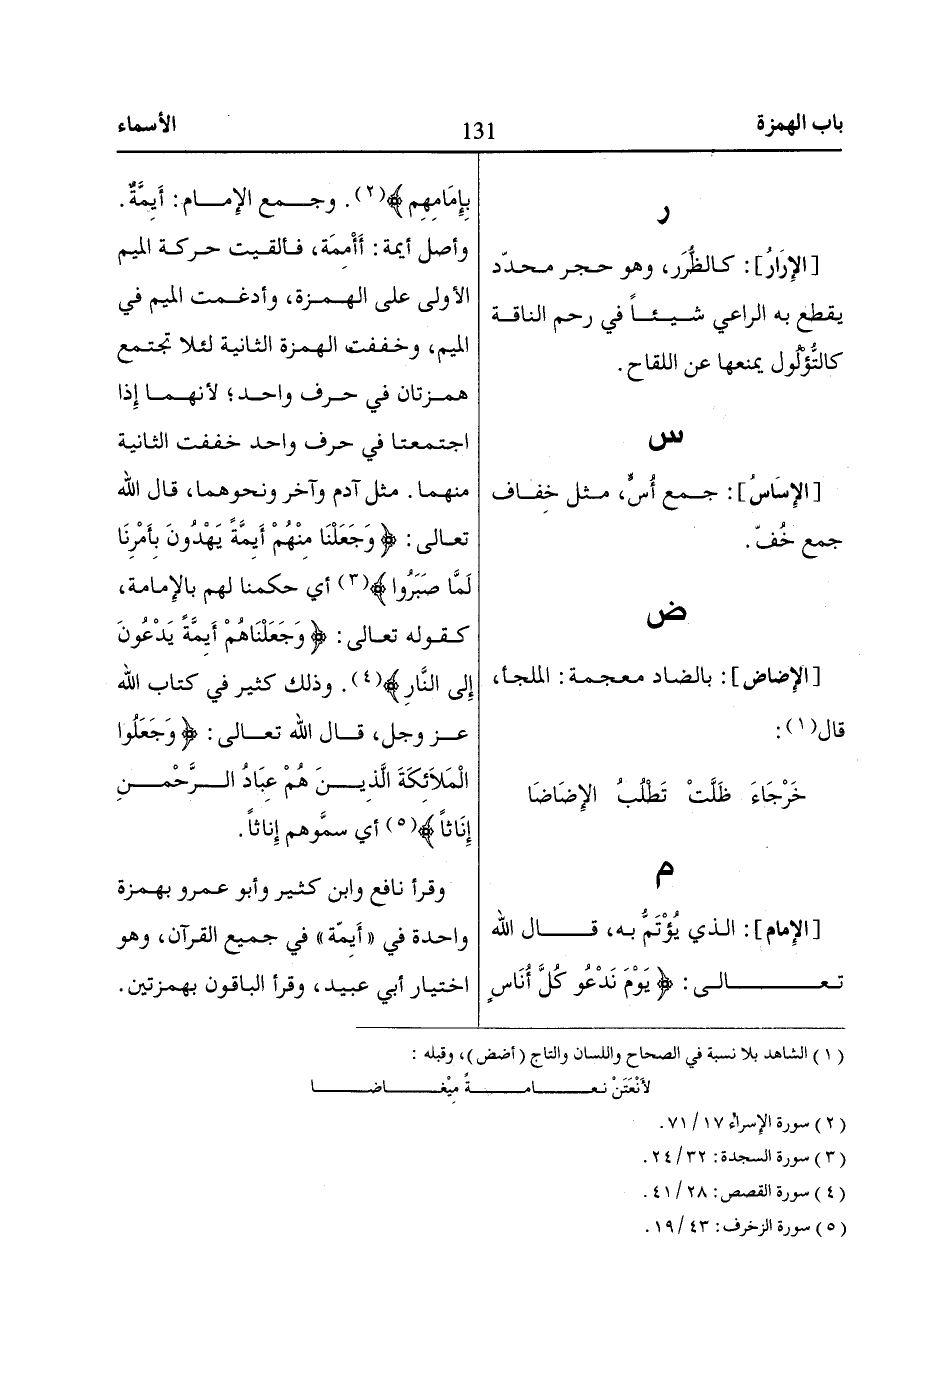 باب الهمزة
131
الأسماء
ر
[الإِرَارُ]: كالظُّرَر، وهو حجر محدّد
يقطع به الراعي شيئاً في رحم الناقة
كالثُّؤْلُول يمنعها عن اللقاح.
س
[الإِسَاسُ]: جمع أُسٍّ، مثل خِفاف
جمع خُفّ.
ض
[الإِضاض]: بالضاد معجمة: الملجأ،
قال(١):
خَرْجَاءَ ظَلَّتْ تَطْلُبُ الإِضَاضَا
م
[الإِمام]: الذي يُؤْتَمُّ به، قال الله
تعالى: ﴿ يَوْمَ نَدْعُو كُلَّ أُنَاسٍ
بِإِمَامِهِم ﴾(٢). وجمع الإِمام: أَيِمَّةٌ.
وأصل أيمة: أَأْمِمَة، فألقيت حركة الميم
الأولى على الهمزة، وأدغمت الميم في
الميم، وخففت الهمزة الثانية لئلا تجتمع
همزتان في حرف واحد؛ لأنهما إِذا
اجتمعتا في حرف واحد خففت الثانية
منهما. مثل آدم وآخر ونحوهما، قال الله
تعالى: ﴿ وَجَعَلْنَا مِنْهُمْ أَيِمَّةً يَهْدُونَ بِأَمْرِنَا
لَمَّا صَبَرُوا ﴾(٣) أي حكمنا لهم بالإِمامة،
كقوله تعالى: ﴿ وَجَعَلْنَاهُمْ أَيِمَّةً يَدْعُونَ
إِلى النَّارِ ﴾(٤). وذلك كثير في كتاب الله
عز وجل، قال الله تعالى: ﴿ وَجَعَلُوا
الْمَلاَئِكَةَ الَّذِينَ هُمْ عِبَادُ الرَّحْمنِ
إِنَاثاً ﴾(٥) أي سمَّوهم إِناثاً.
وقرأ نافع وابن كثير وأبو عمرو بهمزة
واحدة في «أَيِمّة» في جميع القرآن، وهو
اختيار أبي عبيد، وقرأ الباقون بهمزتين.
(١) الشاهد بلا نسبة في الصحاح واللسان والتاج (أضض)، وقبله:
لأَنْعَتَنْ نعامةً مِيْفاضا
(٢) سورة الإِسراء ١٧/ ٧١.
(٣) سورة السجدة: ٣٢/ ٢٤.
(٤) سورة القصص: ٢٨/ ٤١.
(٥) سورة الزخرف: ٤٣/ ١٩.